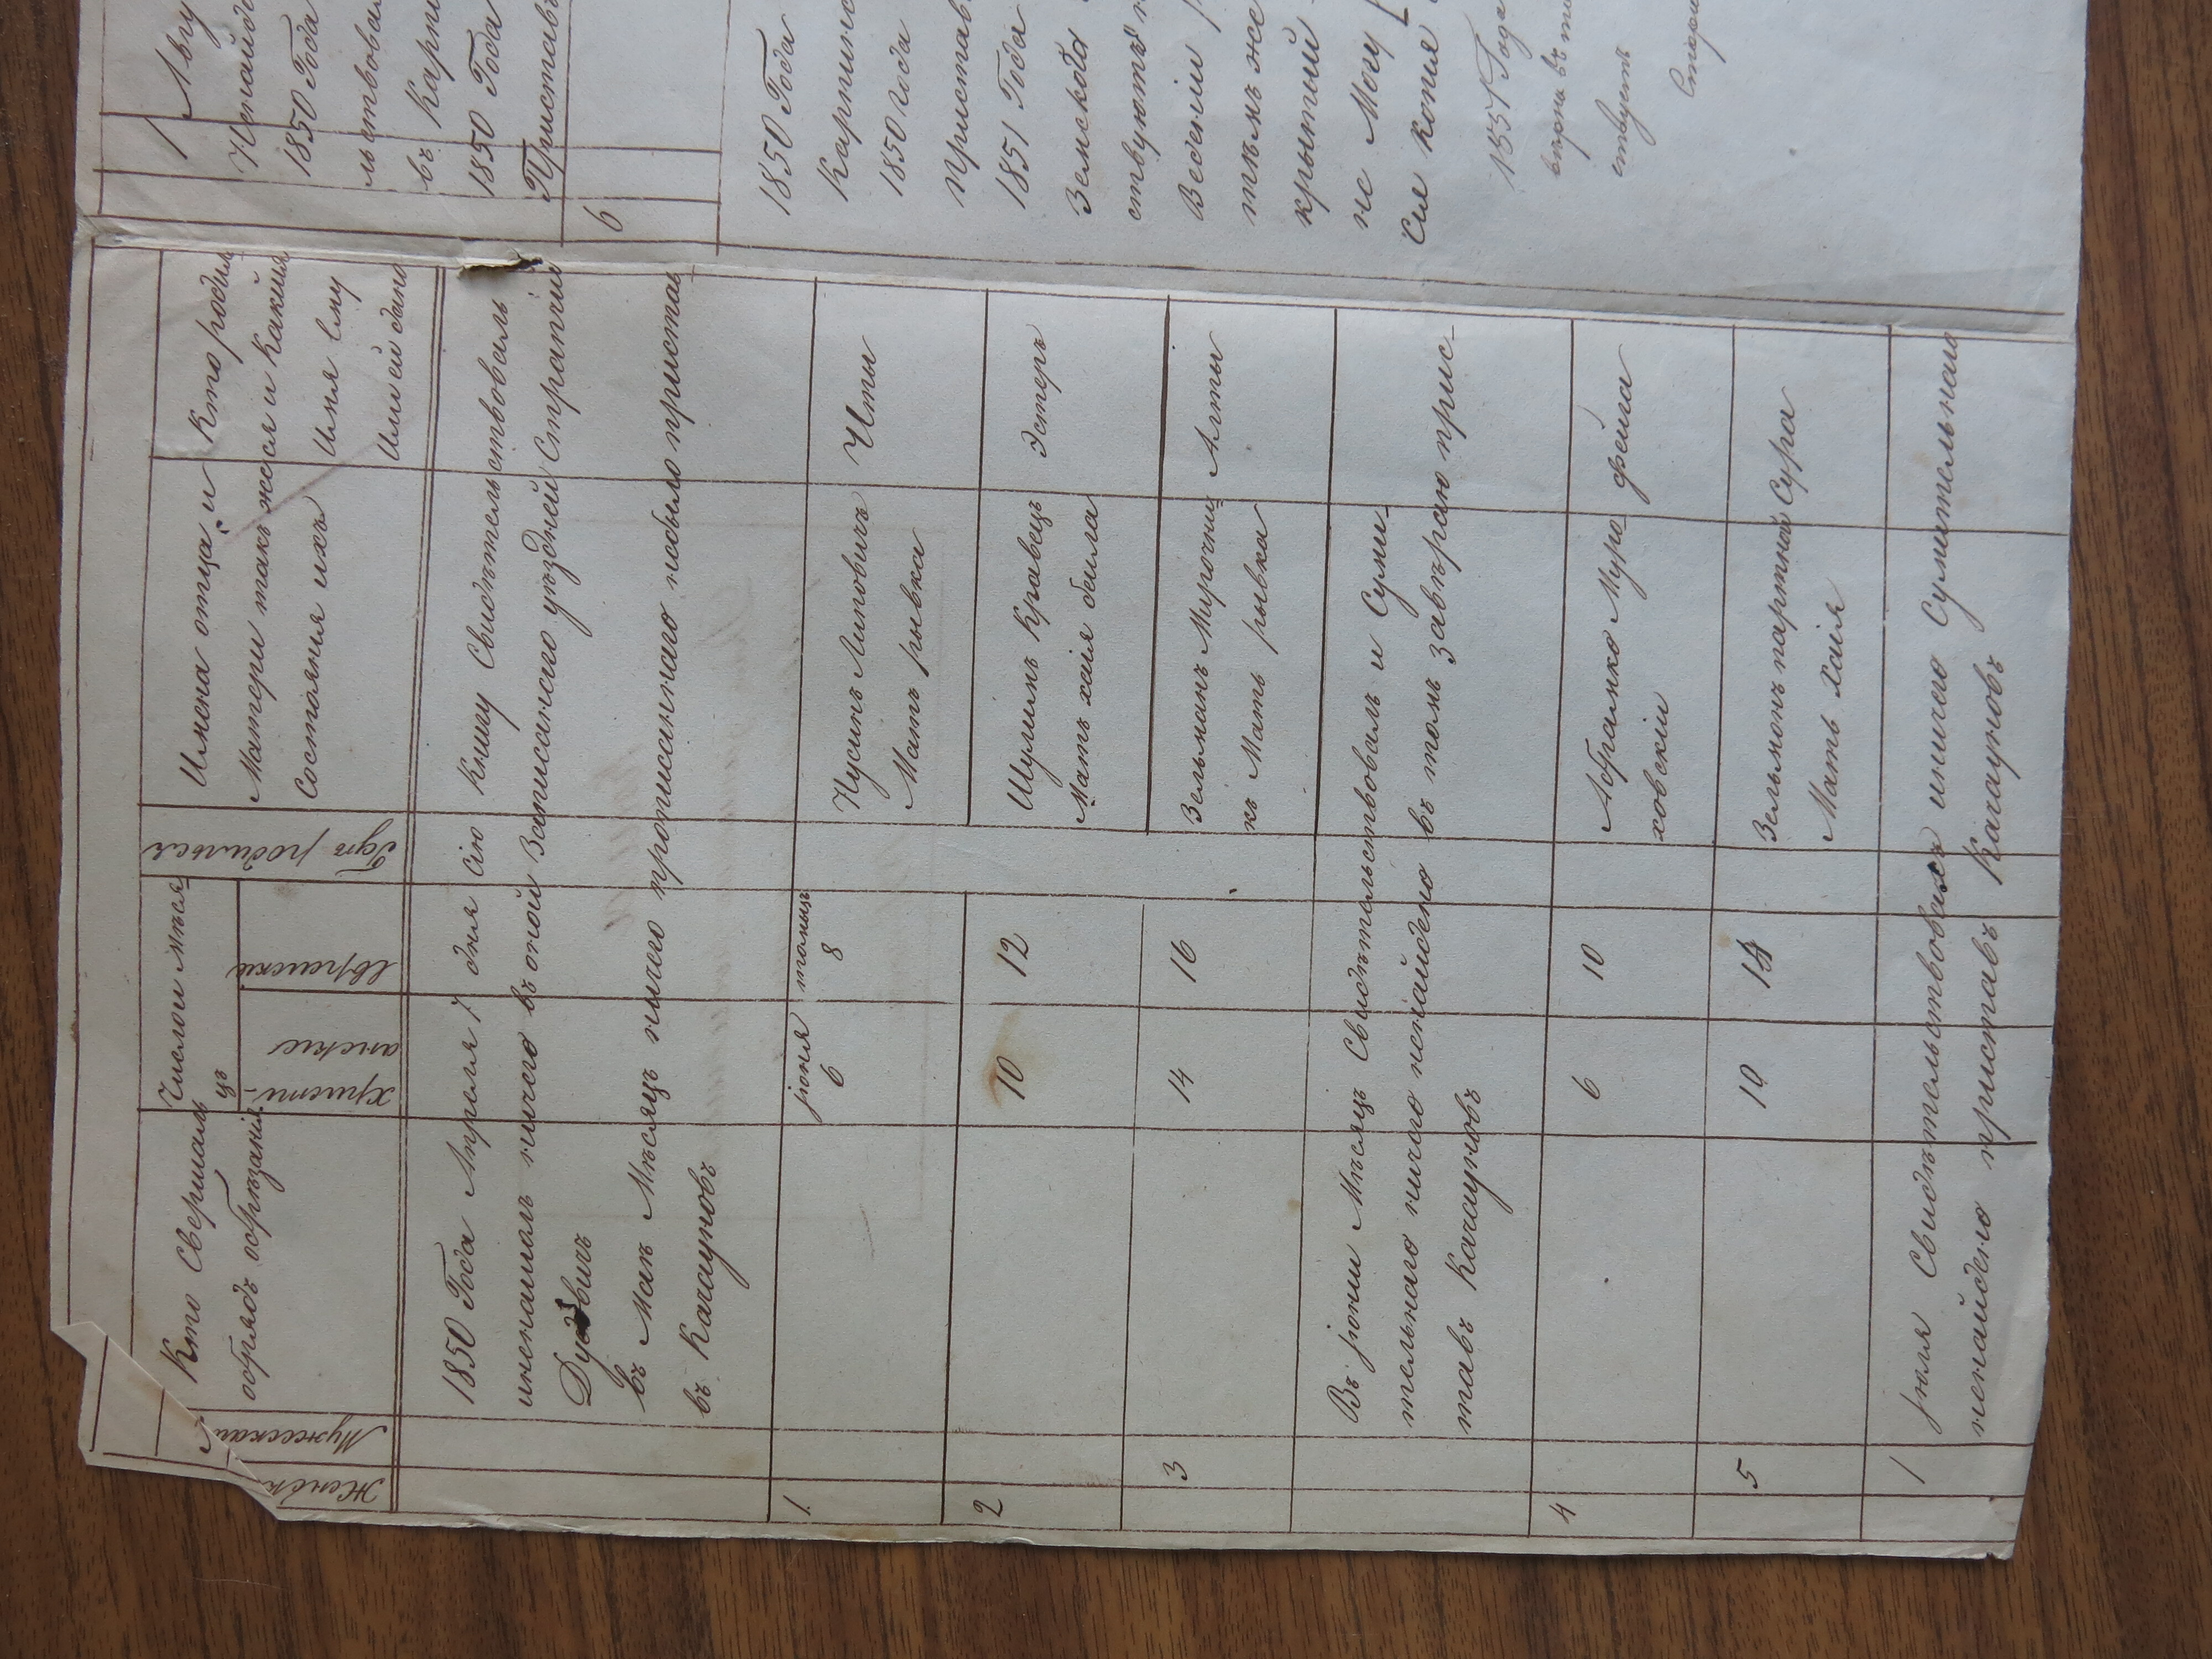 Женск
Мужеская
Кто Свершалъ
обрядъ обрѣзанія
Число и мѣся
цъ
христи-
анскіе
Еврейск
Гдѣ родился
Имена отца и
Матери такъ же
Состояния ихъ
Кто родил
ся и Какия
Имя Ему
Или ей дано
1850 Года Апреля 7 дня Сію Книгу Свидѣтельствовалъ
ничего въ оной Записанаго уѣздней Стратий
Дудвичъ
въ Маѣ Мѣсяцѣ ничего прописаннаго небыло пристав
въ Качауновъ
іюня
1. 6 8 Нусинъ Липовичъ Иты
Мать рывка
2 10 12 Шулимъ Кравецъ Эстеръ
Мать хаія беила
3 14 16 Зельманъ Мирочни Алты
къ Мать рывка
Въ Іюни Мѣсяцѣ Свидѣтельствовалъ и Сумни-
тельнаго ничего ненайдено въ томъ завѣраю прис-
тавъ Качауновъ
4 6 10 Абрамко Муро фейга
ховскіи
5 10 Зельманъ партной Сура
Мать хаія
1 Июля Свидѣтельствовалъ иничего Сумнительнаго
ненайдено приставъ Качауновъ
1 Авгу
Ненайде
1850 Года
льствовал
въ Карпи
1850 Года
Приставъ
6
1850 Года
Карпино
1850 года
Пристав
1851 Года
Земского
ствуютъ
Ведении
тѣмъ же
крытий
не Могу
Сия копия
1851 Года
вѣрна въ
ствуетъ
Стар